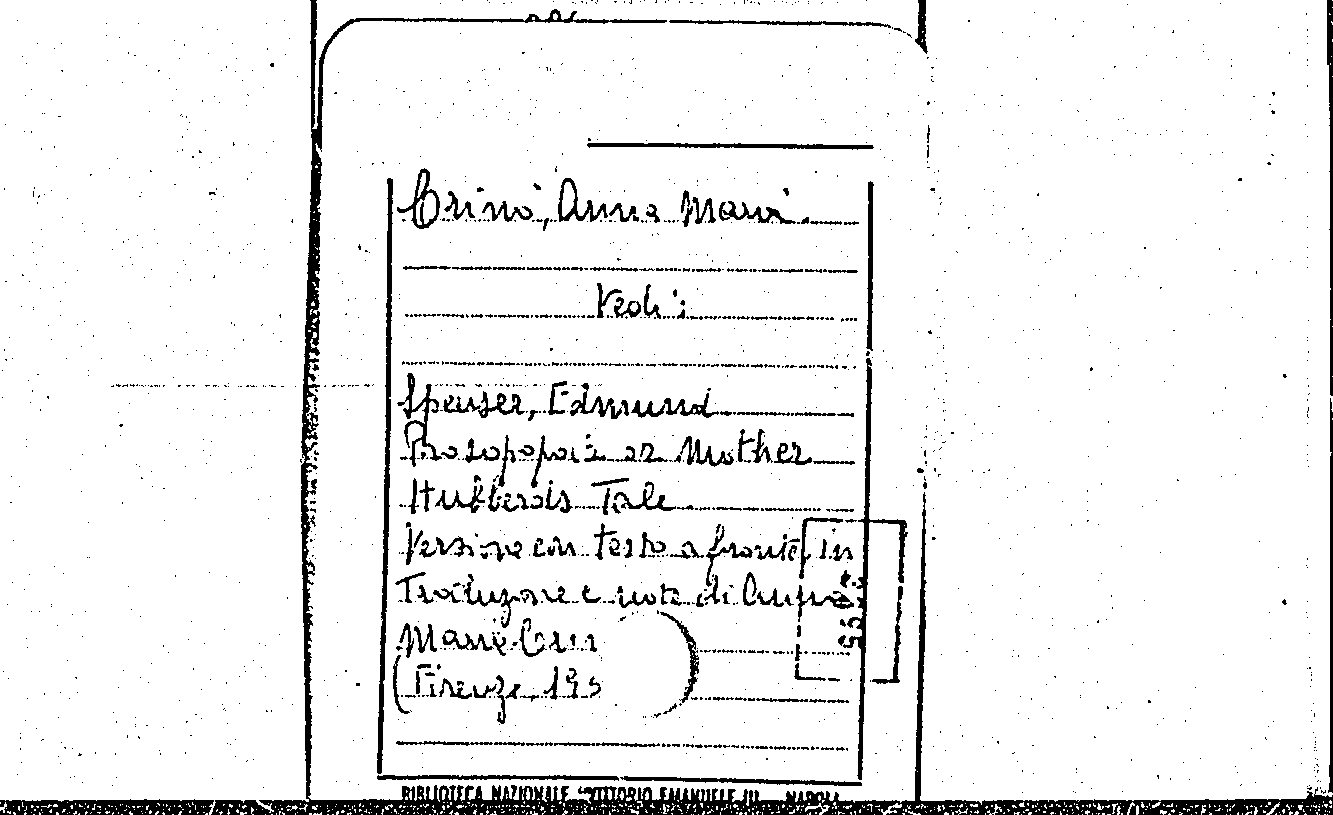 Crinò, Anna Maria.
Vedi:
Spenser, Edmund
Prosopopoia or Mother
Hubberds Tale
Versione con testo a fronte, in
Traduzione e note di Anna
Maria Crin
(Firenze, 195
BIBLIOTECA NAZIONALE "VITTORIO EMANUELE III - NAPOLI